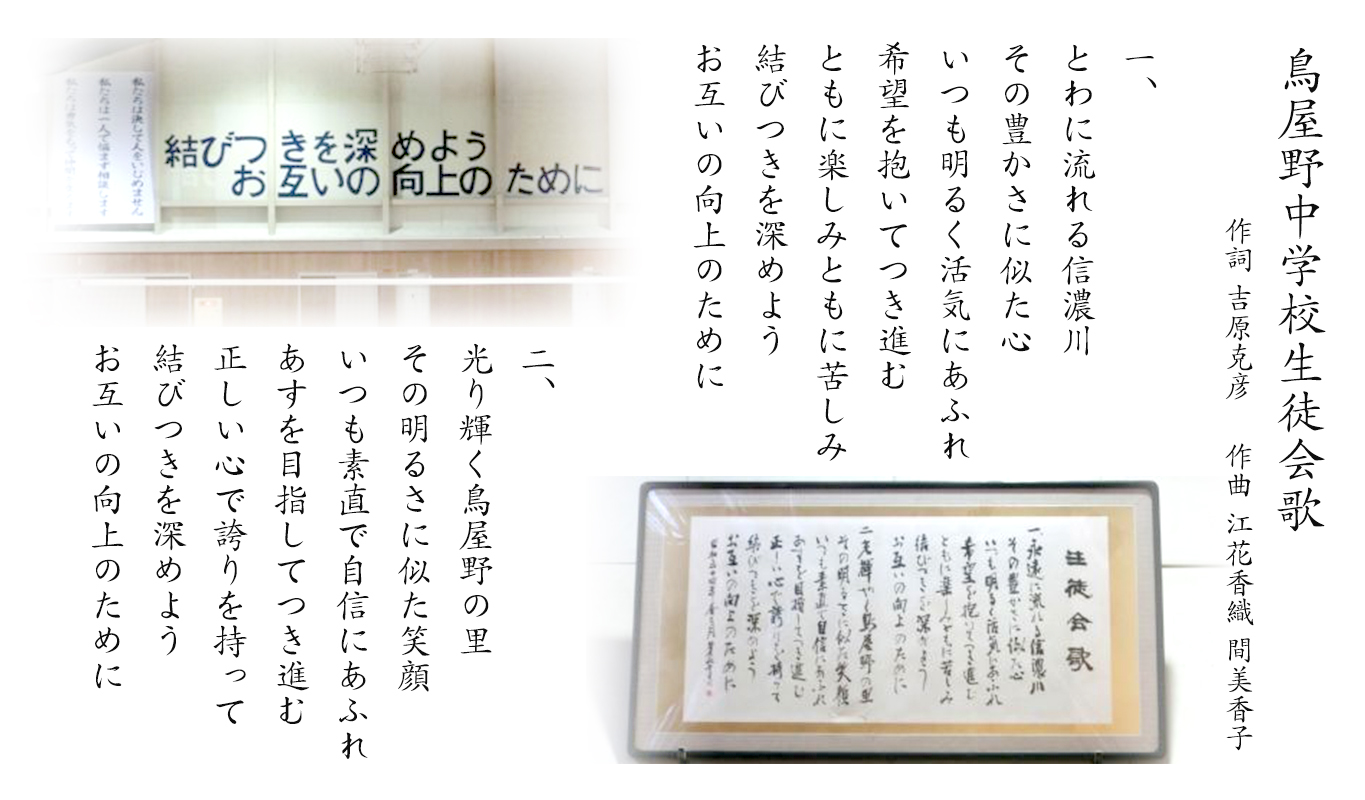 鳥屋野中学校生徒会歌
作詞 吉原克彦　作曲 江花香織 間美香子
一、
とわに流れる信濃川
その豊かさに似た心
いつも明るく活気にあふれ
希望を抱いてつき進む
ともに楽しみともに苦しみ
結びつきを深めよう
お互いの向上のために
二、
光り輝く鳥屋野の里
その明るさに似た笑顔
いつも素直で自信にあふれ
あすを目指してつき進む
正しい心で誇りを持って
結びつきを深めよう
お互いの向上のために
結びつきを深めよう
お互いの向上のために
私たちは決して人をいじめません
私たちは一人で悩まず相談します
生徒会歌
一、永遠に流れる信濃川
その豊かさに似た心
いつも明るく活気にあふれ
希望を抱いてつき進む
ともに楽しみともに苦しみ
結びつきを深めよう
お互いの向上のために
二、光輝やく鳥屋野の里
その明るさに似た笑顔
いつも素直で自信にあふれ
あすを目指してつき進む
正しい心で誇りを持って
結びつきを深めよう
お互いの向上のために